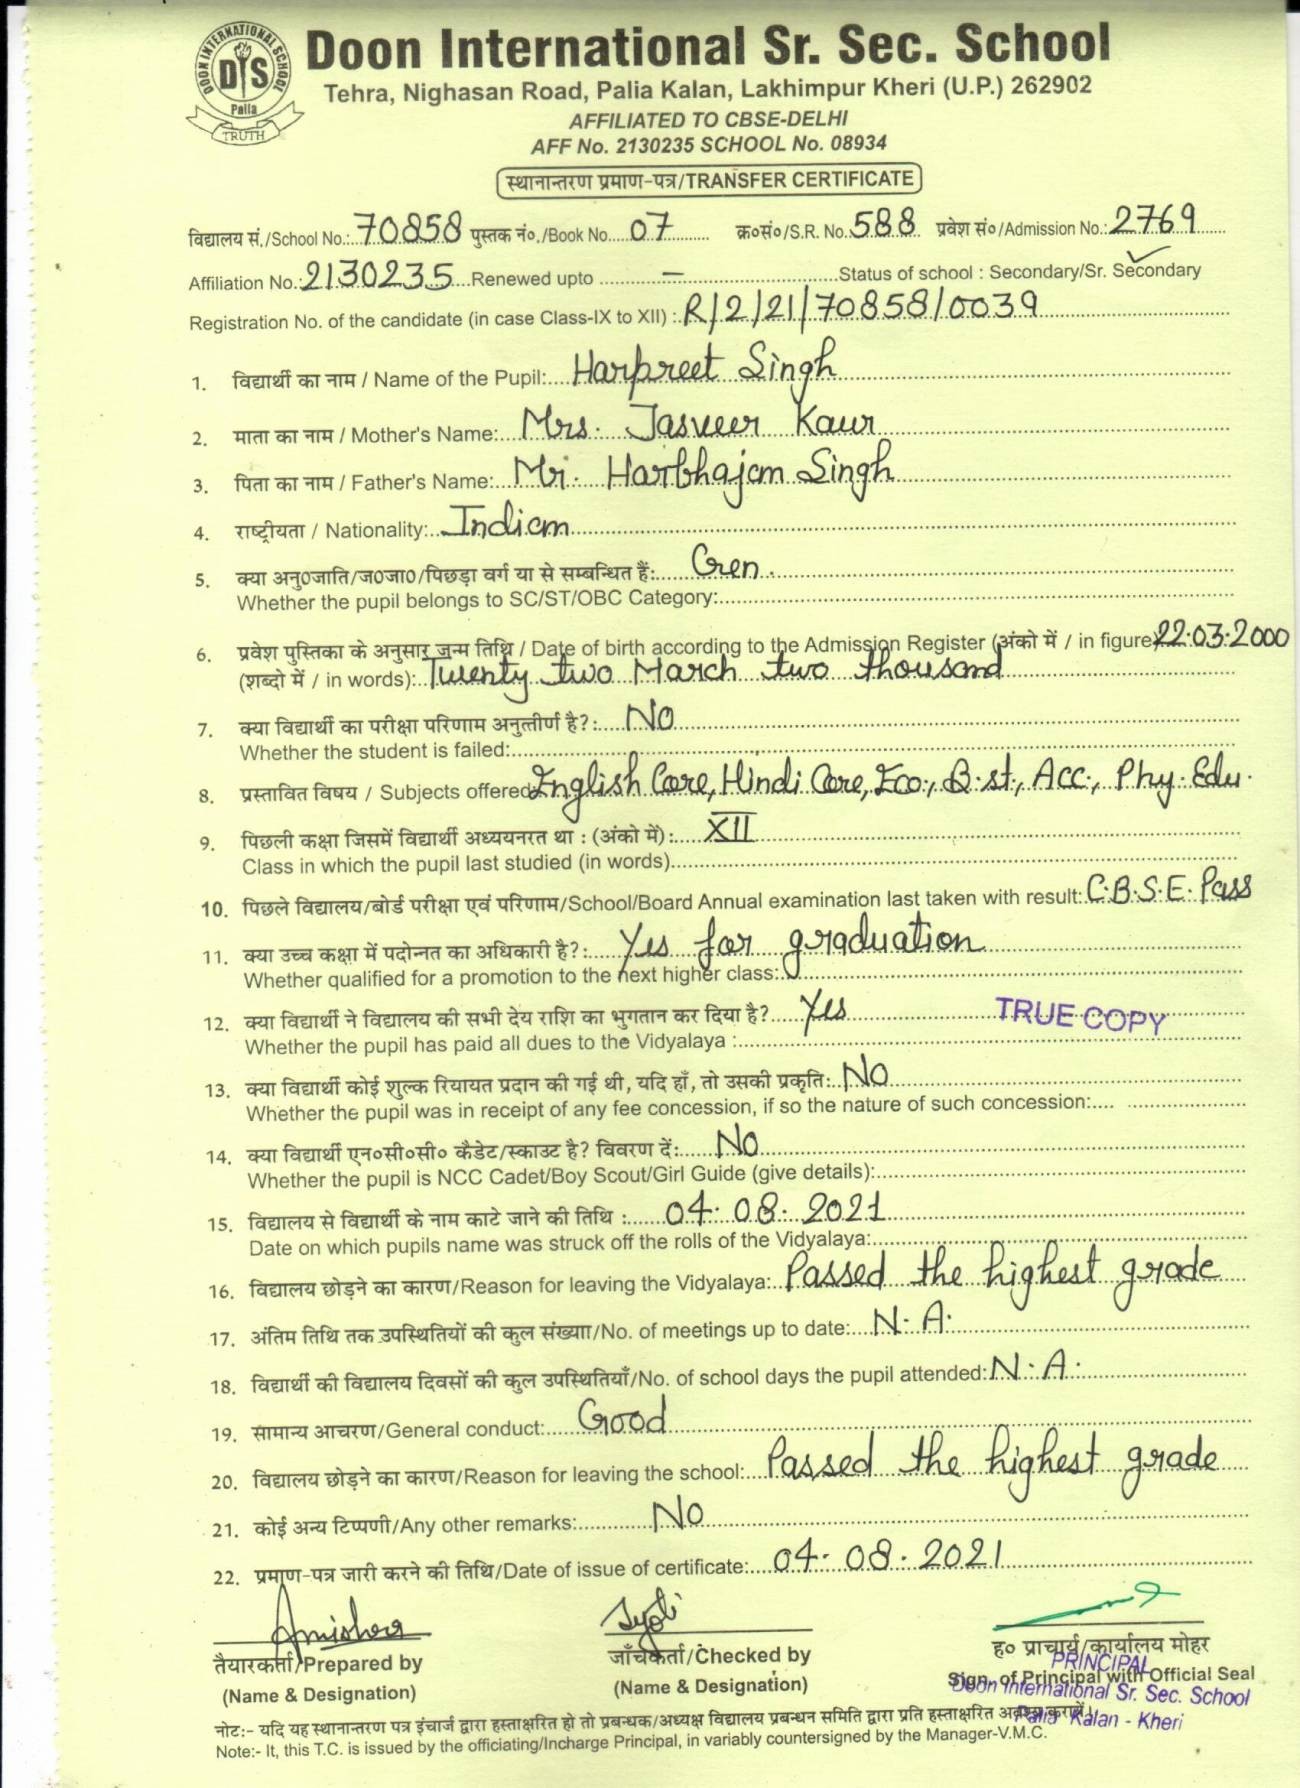 DOON INTERNATIONAL SCHOOL
DIS
Palia
TRUTH
Doon International Sr. Sec. School
Tehra, Nighasan Road, Palia Kalan, Lakhimpur Kheri (U.P.) 262902
AFFILIATED TO CBSE-DELHI
AFF No. 2130235 SCHOOL No. 08934
स्थानान्तरण प्रमाण-पत्र/TRANSFER CERTIFICATE
विद्यालय सं./School No.: 70858 पुस्तक नं०./Book No. 07 क्र०सं०/S.R. No. 588 प्रवेश सं०/Admission No.: 2769
Affiliation No.: 2130235 Renewed upto — Status of school : Secondary/Sr. Secondary
Registration No. of the candidate (in case Class-IX to XII) : R/2/21/70858/0039
1. विद्यार्थी का नाम / Name of the Pupil: Harpreet Singh
2. माता का नाम / Mother's Name: Mrs. Jasveer Kaur
3. पिता का नाम / Father's Name: Mr. Harbhajan Singh
4. राष्ट्रीयता / Nationality: Indian
5. क्या अनु0जाति/ज0जा0/पिछड़ा वर्ग या से सम्बन्धित हैं: Gen.
Whether the pupil belongs to SC/ST/OBC Category:
6. प्रवेश पुस्तिका के अनुसार जन्म तिथि / Date of birth according to the Admission Register (अंको में / in figure) 22.03.2000
(शब्दो में / in words): Twenty two March two thousand
7. क्या विद्यार्थी का परीक्षा परिणाम अनुत्तीर्ण है?: No
Whether the student is failed:
8. प्रस्तावित विषय / Subjects offered: English Core, Hindi Core, Eco., B.st., Acc., Phy. Edu.
9. पिछली कक्षा जिसमें विद्यार्थी अध्ययनरत था : (अंको में) : XII
Class in which the pupil last studied (in words)
10. पिछले विद्यालय/बोर्ड परीक्षा एवं परिणाम/School/Board Annual examination last taken with result: C.B.S.E. Pass
11. क्या उच्च कक्षा में पदोन्नत का अधिकारी है?: Yes for graduation
Whether qualified for a promotion to the next higher class:
12. क्या विद्यार्थी ने विद्यालय की सभी देय राशि का भुगतान कर दिया है? Yes
TRUE COPY
Whether the pupil has paid all dues to the Vidyalaya :
13. क्या विद्यार्थी कोई शुल्क रियायत प्रदान की गई थी, यदि हाँ, तो उसकी प्रकृति: No
Whether the pupil was in receipt of any fee concession, if so the nature of such concession:
14. क्या विद्यार्थी एन०सी०सी० कैडेट/स्काउट है? विवरण दें: No
Whether the pupil is NCC Cadet/Boy Scout/Girl Guide (give details):
15. विद्यालय से विद्यार्थी के नाम काटे जाने की तिथि : 04.08.2021
Date on which pupils name was struck off the rolls of the Vidyalaya:
16. विद्यालय छोड़ने का कारण/Reason for leaving the Vidyalaya: Passed the highest grade
17. अंतिम तिथि तक उपस्थितियों की कुल संख्या/No. of meetings up to date: N.A.
18. विद्यार्थी की विद्यालय दिवसों की कुल उपस्थितियाँ/No. of school days the pupil attended: N.A.
19. सामान्य आचरण/General conduct: Good
20. विद्यालय छोड़ने का कारण/Reason for leaving the school: Passed the highest grade
21. कोई अन्य टिप्पणी/Any other remarks: No
22. प्रमाण-पत्र जारी करने की तिथि/Date of issue of certificate: 04.08.2021
Jyoti
तैयारकर्ता/Prepared by जाँचकर्ता/Checked by ह० प्राचार्य/कार्यालय मोहर
PRINCIPAL
(Name & Designation) (Name & Designation) Sign. of Principal with Official Seal
Doon International Sr. Sec. School
Palia Kalan - Kheri
नोट:- यदि यह स्थानान्तरण पत्र इंचार्ज द्वारा हस्ताक्षरित हो तो प्रबन्धक/अध्यक्ष विद्यालय प्रबन्धन समिति द्वारा प्रति हस्ताक्षरित अवश्य करायें।
Note:- It, this T.C. is issued by the officiating/Incharge Principal, in variably countersigned by the Manager-V.M.C.